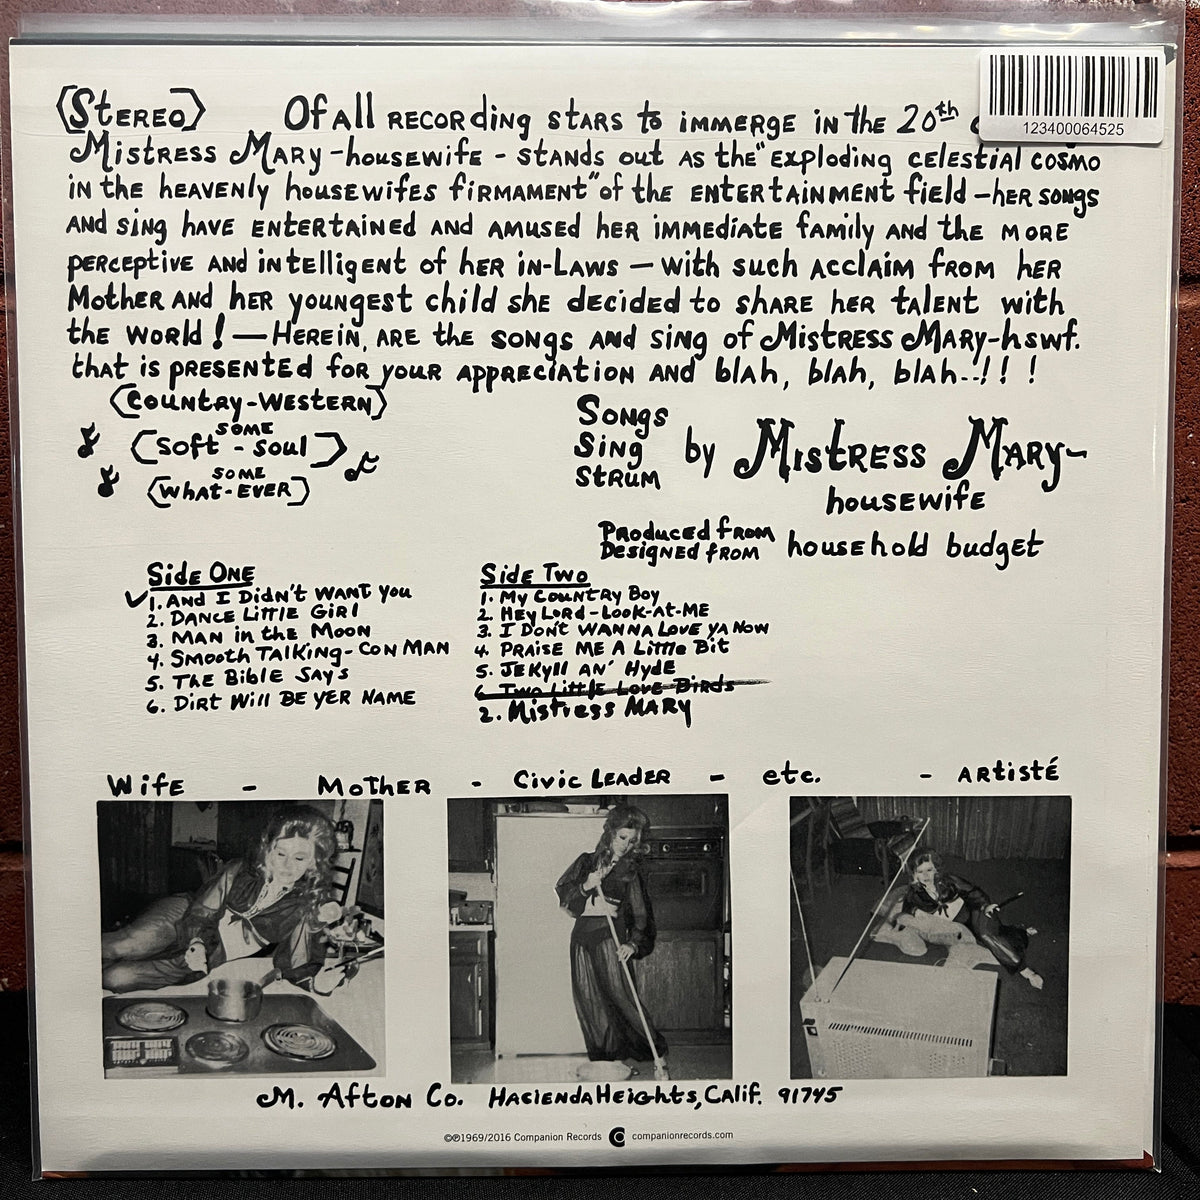 (Stereo) Of all recording stars to immerge in the 20th
123400064525
Mistress Mary-housewife - stands out as the "exploding celestial cosmo
in the heavenly housewifes firmament" of the entertainment field - her songs
and sing have entertained and amused her immediate family and the more
perceptive and intelligent of her in-laws - with such acclaim from her
Mother and her youngest child she decided to share her talent with
the world! - Herein, are the songs and sing of Mistress Mary-hswf.
that is presented for your appreciation and blah, blah, blah..!!!
(Country-Western)
some
(Soft-Soul)
some
(What-Ever)
Songs
Sing
Strum
by Mistress Mary-
housewife
Produced from
Designed from
household budget
Side One
1. And I Didn't Want You
2. Dance Little Girl
3. Man in the Moon
4. Smooth Talking-Con Man
5. The Bible Says
6. Dirt Will Be Yer Name
Side Two
1. My Country Boy
2. Hey Lord-Look-At-Me
3. I Don't Wanna Love Ya Now
4. Praise Me A Little Bit
5. Jekyll An' Hyde
6 Two Little Love Birds
2. Mistress Mary
Wife - Mother - Civic Leader - etc. - Artisté
M. Afton Co. Hacienda Heights, Calif. 91745
©℗1969/2016 Companion Records C companionrecords.com